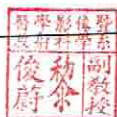 醫學影像暨
放射科學系
副教授
俊蔚